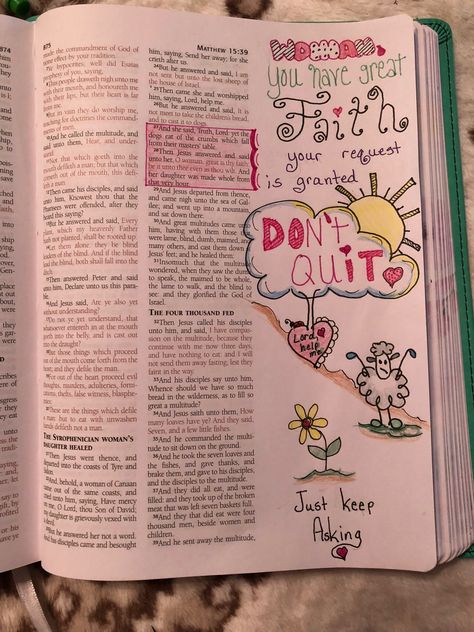 875
MATTHEW 15:39
made the commandment of God of
none effect by your tradition.
Ye hypocrites, well did Esaias
prophesy of you, saying,
This people draweth nigh unto me
with their mouth, and honoureth me
with their lips; but their heart is far
from me.
But in vain they do worship me,
teaching for doctrines the command-
ments of men.
And he called the multitude, and
said unto them, Hear, and under-
stand:
Not that which goeth into the
mouth defileth a man; but that which
cometh out of the mouth, this defi-
leth a man.
Then came his disciples, and said
unto him, Knowest thou that the
Pharisees were offended, after they
heard this saying?
But he answered and said, Every
plant, which my heavenly Father
hath not planted, shall be rooted up.
Let them alone: they be blind
leaders of the blind. And if the blind
lead the blind, both shall fall into the
ditch.
Then answered Peter and said
unto him, Declare unto us this para-
ble.
And Jesus said, Are ye also yet
without understanding?
Do not ye yet understand, that
whatsoever entereth in at the mouth
goeth into the belly, and is cast out
into the draught?
But those things which proceed
out of the mouth come forth from the
heart; and they defile the man.
For out of the heart proceed evil
thoughts, murders, adulteries, forni-
cations, thefts, false witness, blasphe-
mies:
These are the things which defile
a man: but to eat with unwashen
hands defileth not a man.
THE SYROPHENICIAN WOMAN'S
DAUGHTER HEALED
Then Jesus went thence, and
departed into the coasts of Tyre and
Sidon.
And, behold, a woman of Canaan
came out of the same coasts, and
cried unto him, saying, Have mercy
on me, O Lord, thou Son of David;
my daughter is grievously vexed with
a devil.
But he answered her not a word.
And his disciples came and besought
him, saying, Send her away; for she
crieth after us.
But he answered and said, I am
not sent but unto the lost sheep of
the house of Israel.
Then came she and worshipped
him, saying, Lord, help me.
But he answered and said, It is
not meet to take the children's bread,
and to cast it to dogs.
And she said, Truth, Lord: yet the
dogs eat of the crumbs which fall
from their masters' table.
Then Jesus answered and said
unto her, O woman, great is thy faith:
be it unto thee even as thou wilt. And
her daughter was made whole from
that very hour.
And Jesus departed from thence,
and came nigh unto the sea of Gal-
ilee; and went up into a mountain,
and sat down there.
And great multitudes came unto
him, having with them those that
were lame, blind, dumb, maimed, and
many others, and cast them down at
Jesus' feet; and he healed them:
Insomuch that the multitude
wondered, when they saw the dumb
to speak, the maimed to be whole,
the lame to walk, and the blind to
see: and they glorified the God of
Israel.
THE FOUR THOUSAND FED
Then Jesus called his disciples
unto him, and said, I have compas-
sion on the multitude, because they
continue with me now three days,
and have nothing to eat: and I will
not send them away fasting, lest they
faint in the way.
And his disciples say unto him,
Whence should we have so much
bread in the wilderness, as to fill so
great a multitude?
And Jesus saith unto them, How
many loaves have ye? And they said,
Seven, and a few little fishes.
And he commanded the multi-
tude to sit down on the ground.
And he took the seven loaves and
the fishes, and gave thanks, and
brake them, and gave to his disciples,
and the disciples to the multitude.
And they did all eat, and were
filled: and they took up of the broken
meat that was left seven baskets full.
And they that did eat were four
thousand men, beside women and
children.
And he sent away the multitude,
WOMAN
You have great
Faith
your request
is granted
DON'T
QUIT
Lord,
help
me
Just keep
Asking